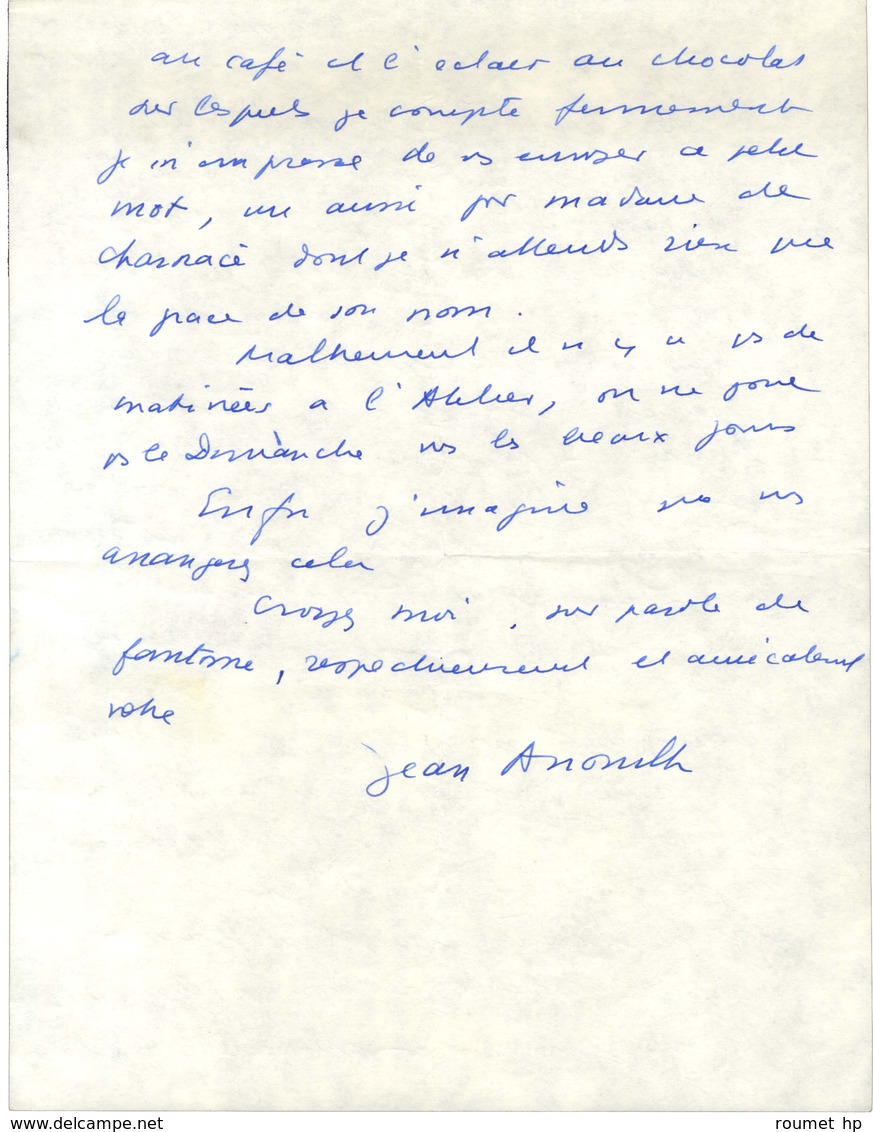 au café et l'eclair au chocolat
sur lesquels je compte fermement
je m'empresse de vs envoyer ce petit
mot, un aussi pr madame de
Charnacé dont je n'attends rien que
la grace de son nom.
Malheureusement il n'y a ps de
matinées a l'Atelier, on ne joue
ps le Dimanche ds les beaux jours
Enfin j'imagine que vs
arrangerez cela
Croyez moi, sur parole de
fantome, respectueusement et amicalement
votre
Jean Anouilh
www.delcampe.net
roumet hp